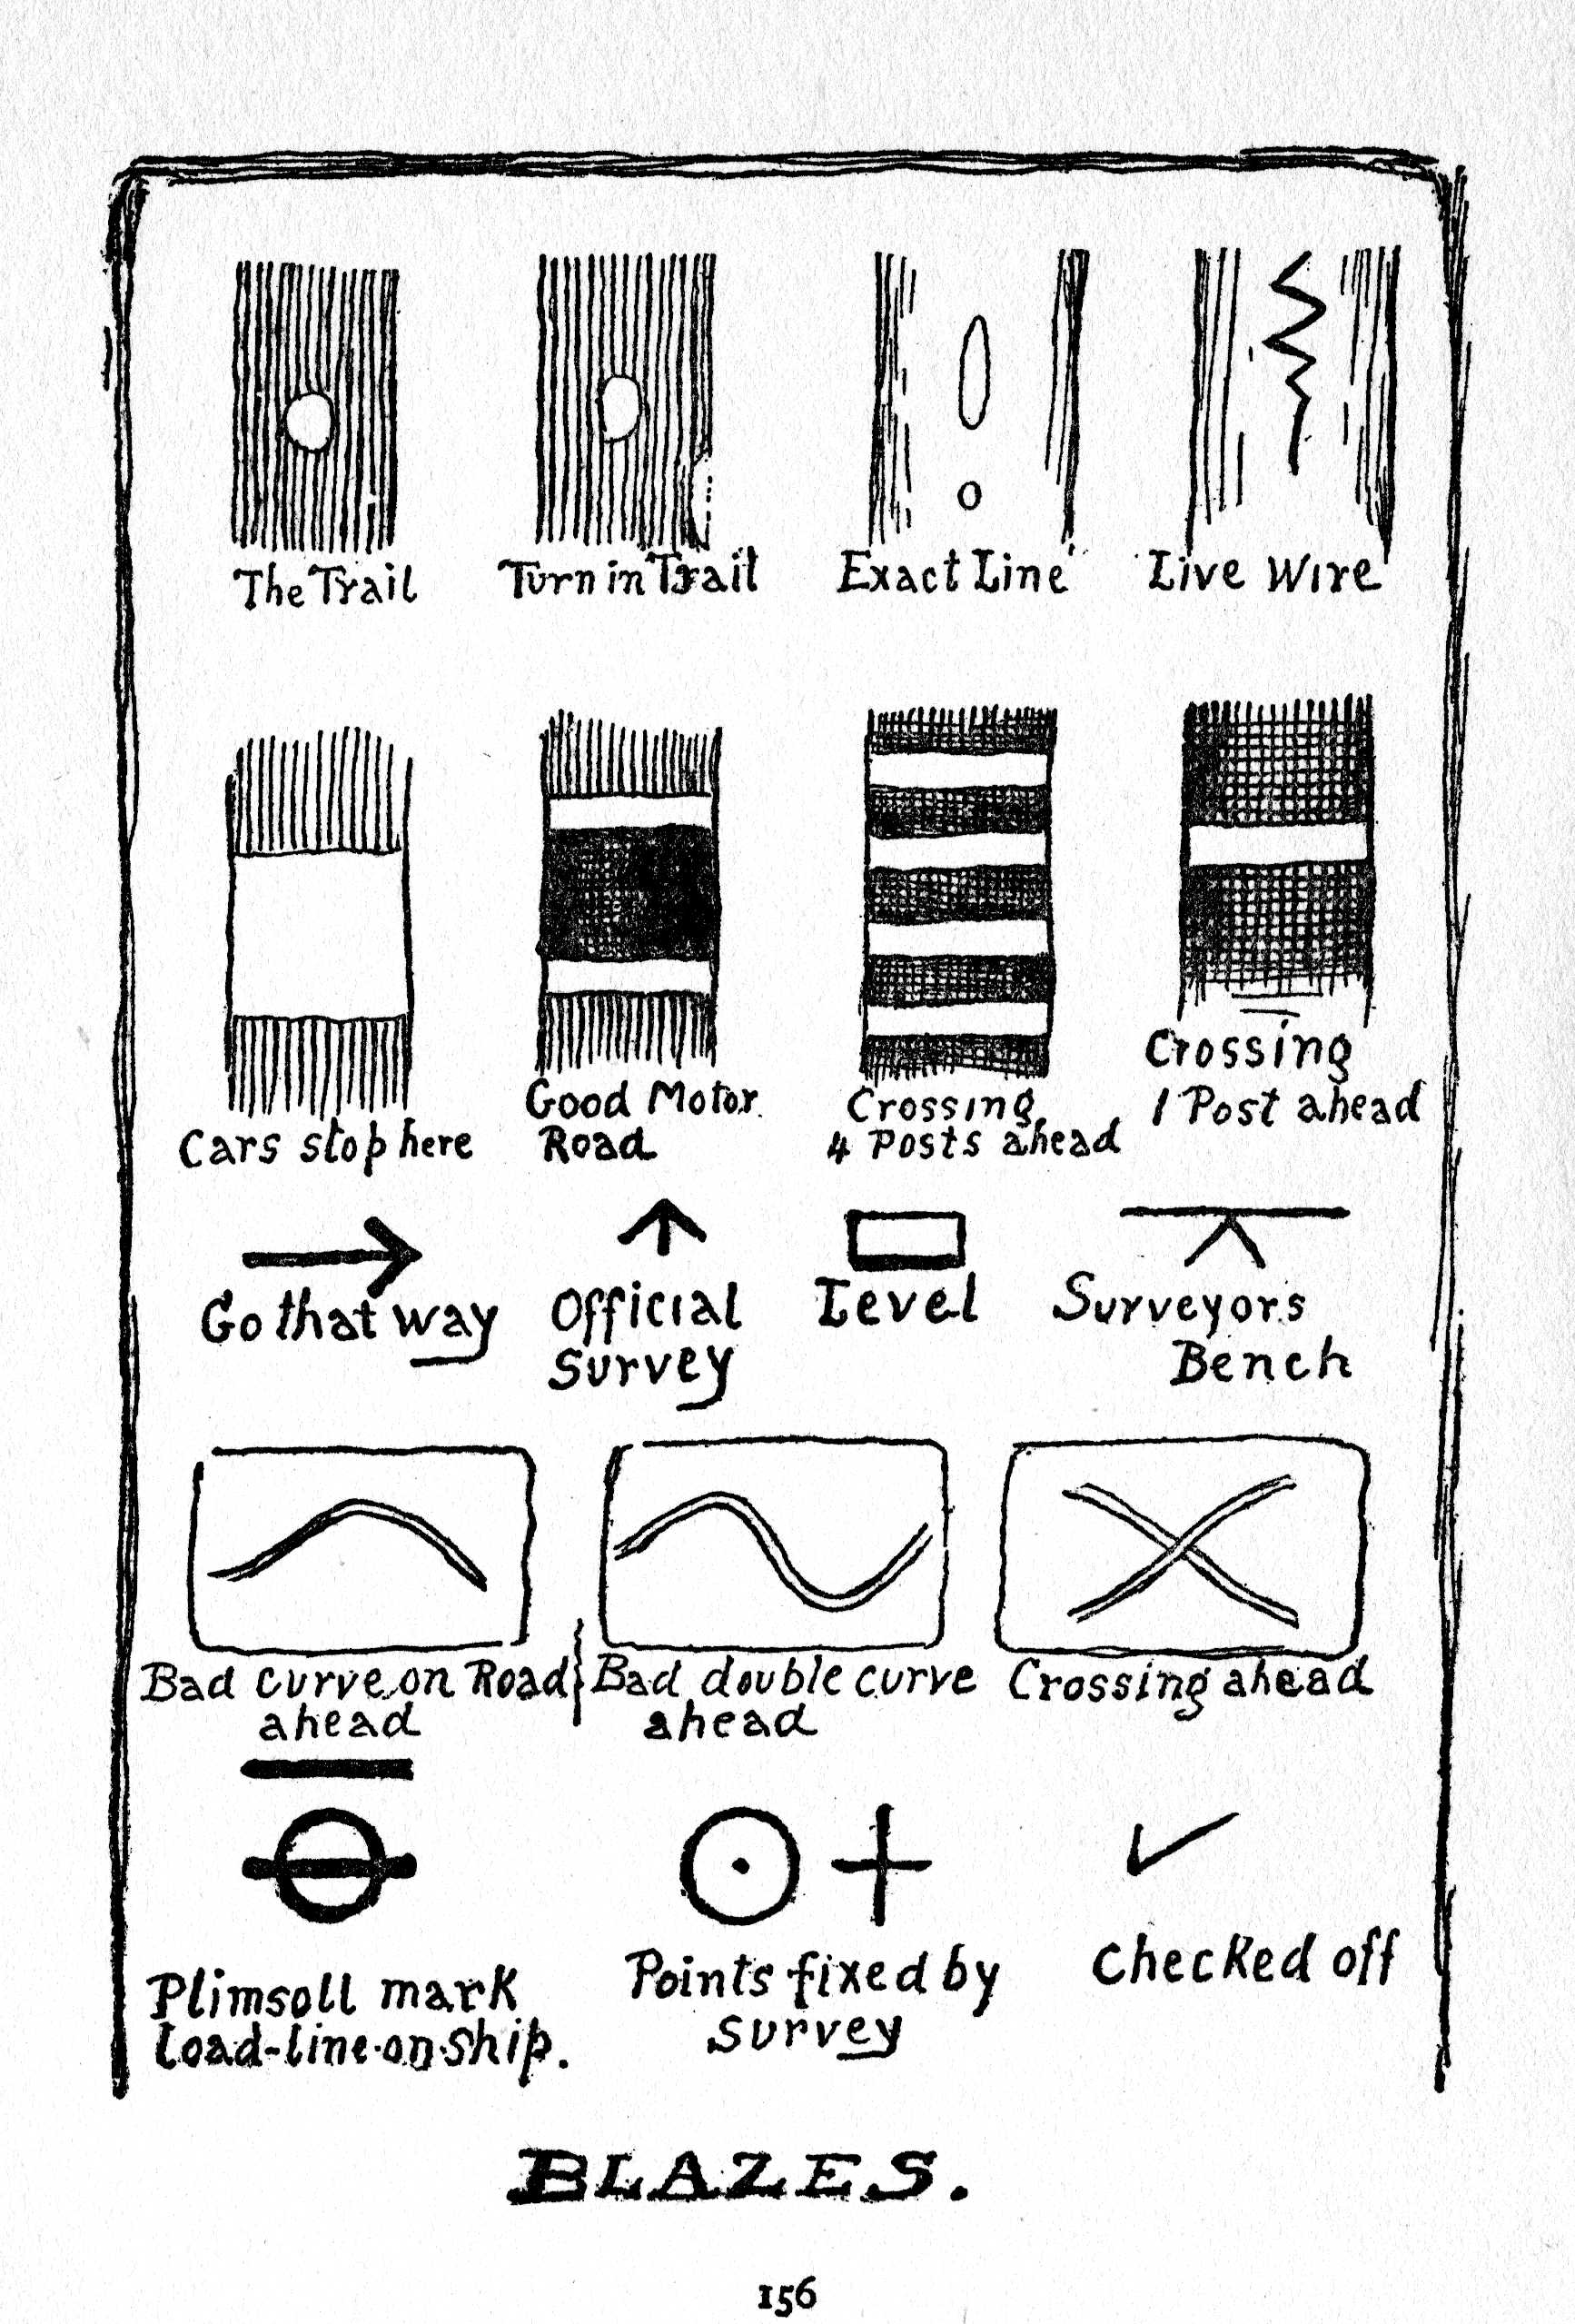 The Trail
Turn in Trail
Exact Line
Live Wire
Cars stop here
Good Motor
Road
Crossing
4 Posts ahead
Crossing
1 Post ahead
Go that way
Official
Survey
Level
Surveyors
Bench
Bad curve on Road
ahead
Bad double curve
ahead
Crossing ahead
Plimsoll mark
load-line-on-ship.
Points fixed by
survey
checked off
BLAZES.
156